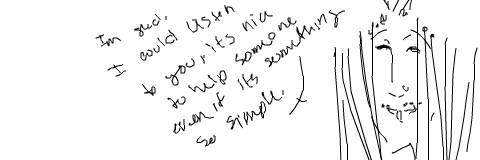 Im glad,
I could listen
to your its nic
to help someone
even if its something
so simple.